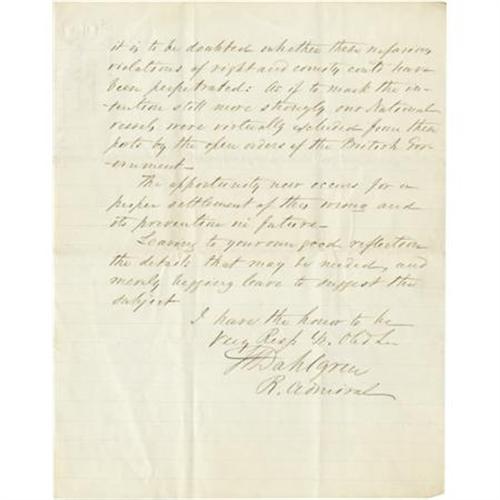 it is to be doubted whether these nefarious
violations of right and comity could have
been perpetrated: As if to mark the in-
-tention still more strongly our National
vessels were virtually excluded from these
ports by the open orders of the British Gov-
-ernment—
The opportunity now occurs for a
proper settlement of this wrong and
its prevention in future—
Leaving to your own good reflection
the details that may be needed, and
merely begging leave to suggest the
subject
I have the honor to be
Very Resp Yr. Obd
Dahlgren
R. Admiral